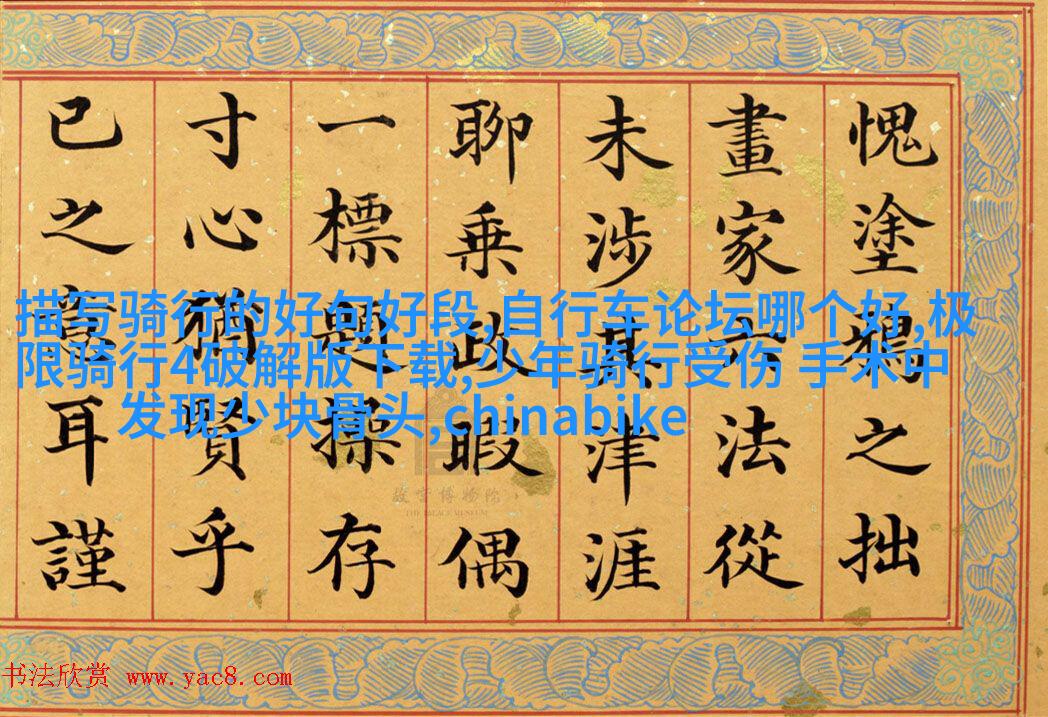 愧塗鴉之拙
畫家六法從
未涉其津涯
聊乘政暇偶
一標題操存
寸心賢乎
已之意耳謹
描写骑行的好句好段,自行车论坛哪个好,极
限骑行4破解版下载,少年骑行受伤 手术中
发现少块骨头,chinabike
故宫博物院
THE PALACE MUSEUM
书法欣赏 www.yac8.com